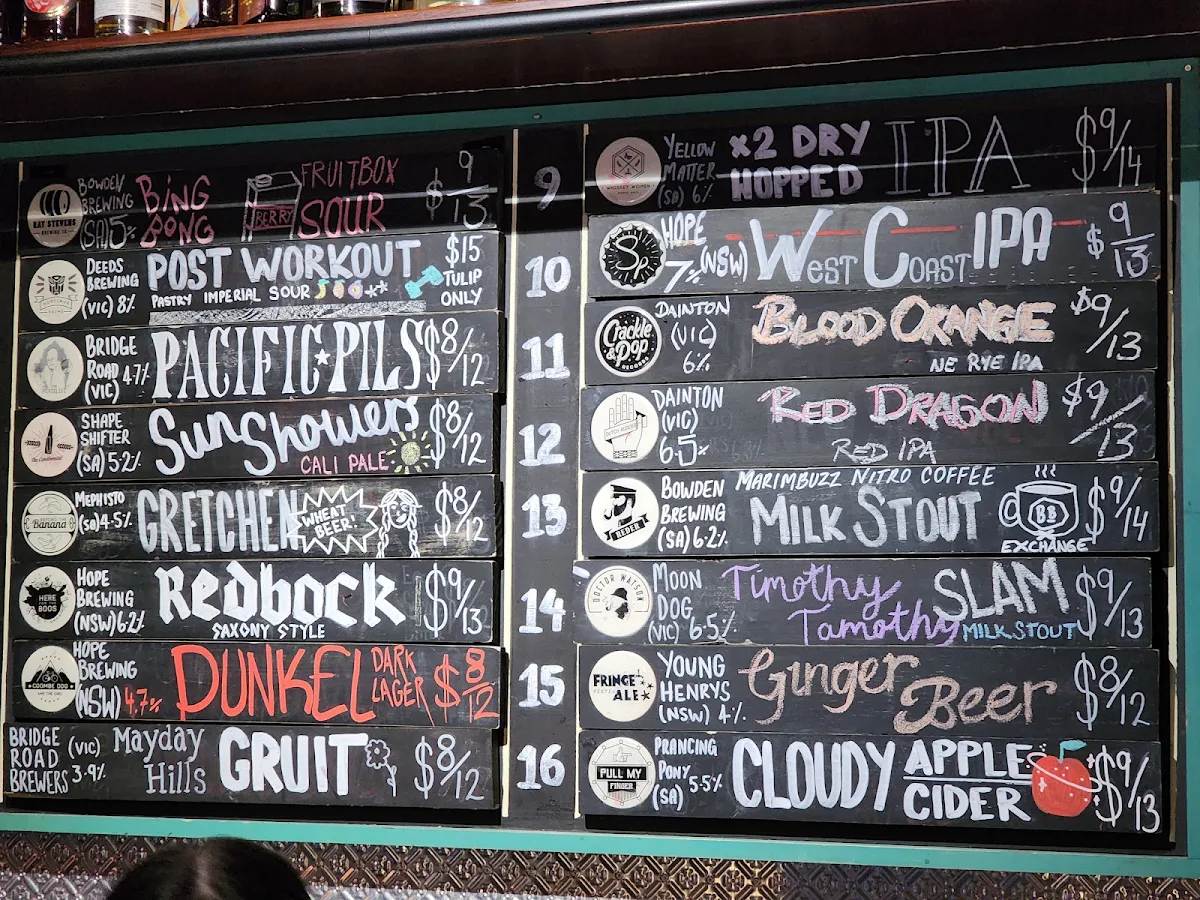 EAT STEVENS
BOWDEN
BREWING
(SA) 5%
BING
BONG
BERRY
FRUITBOX
SOUR
$9/13
DEEDS
BREWING
(VIC) 8%
POST WORKOUT
PASTRY IMPERIAL SOUR
$15
TULIP
ONLY
BRIDGE
ROAD 4.7%
(VIC)
PACIFIC★PILS
$8/12
SHAPE
SHIFTER
(SA) 5.2%
SunShowers
CALI PALE
$8/12
Banana
MEPHISTO
(SA) 4.5%
GRETCHEN
WHEAT
BEER!
$8/12
HERE
BOOS
HOPE
BREWING
(NSW) 6.2%
Redbock
SAXONY STYLE
$9/13
COOMBE DOG
HOPE
BREWING
(NSW) 4.7%
DUNKEL
DARK
LAGER
$8/12
BRIDGE
ROAD (VIC)
BREWERS 3.9%
Mayday
Hills
GRUIT
$8/12
9
10
11
12
13
14
15
16
WHISKEY WOMEN
YELLOW
MATTER
(SA) 6%
x2 DRY
HOPPED
IPA
$9/14
SP
HOPE
7% (NSW)
WEST COAST IPA
$9/13
Crackle
&Pop
RECORDS
DAINTON
(VIC)
6%
BLOOD ORANGE
NE RYE IPA
$9/13
DAINTON
(VIC)
6.5%
RED DRAGON
RED IPA
$9/13
BEDER
BOWDEN
BREWING
(SA) 6.2%
MARIMBUZZ NITRO COFFEE
MILK STOUT
BB
EXCHANGE
$9/14
DOCTOR WATSON
MOON
DOG
(VIC) 6.5%
Timothy
Tamothy
SLAM
MILK STOUT
$9/13
FRINGE
ALE
YOUNG
HENRYS
(NSW) 4%
Ginger
Beer
$8/12
PULL MY
FINGER
PRANCING
PONY 5.5%
(SA)
CLOUDY
APPLE
CIDER
$9/13